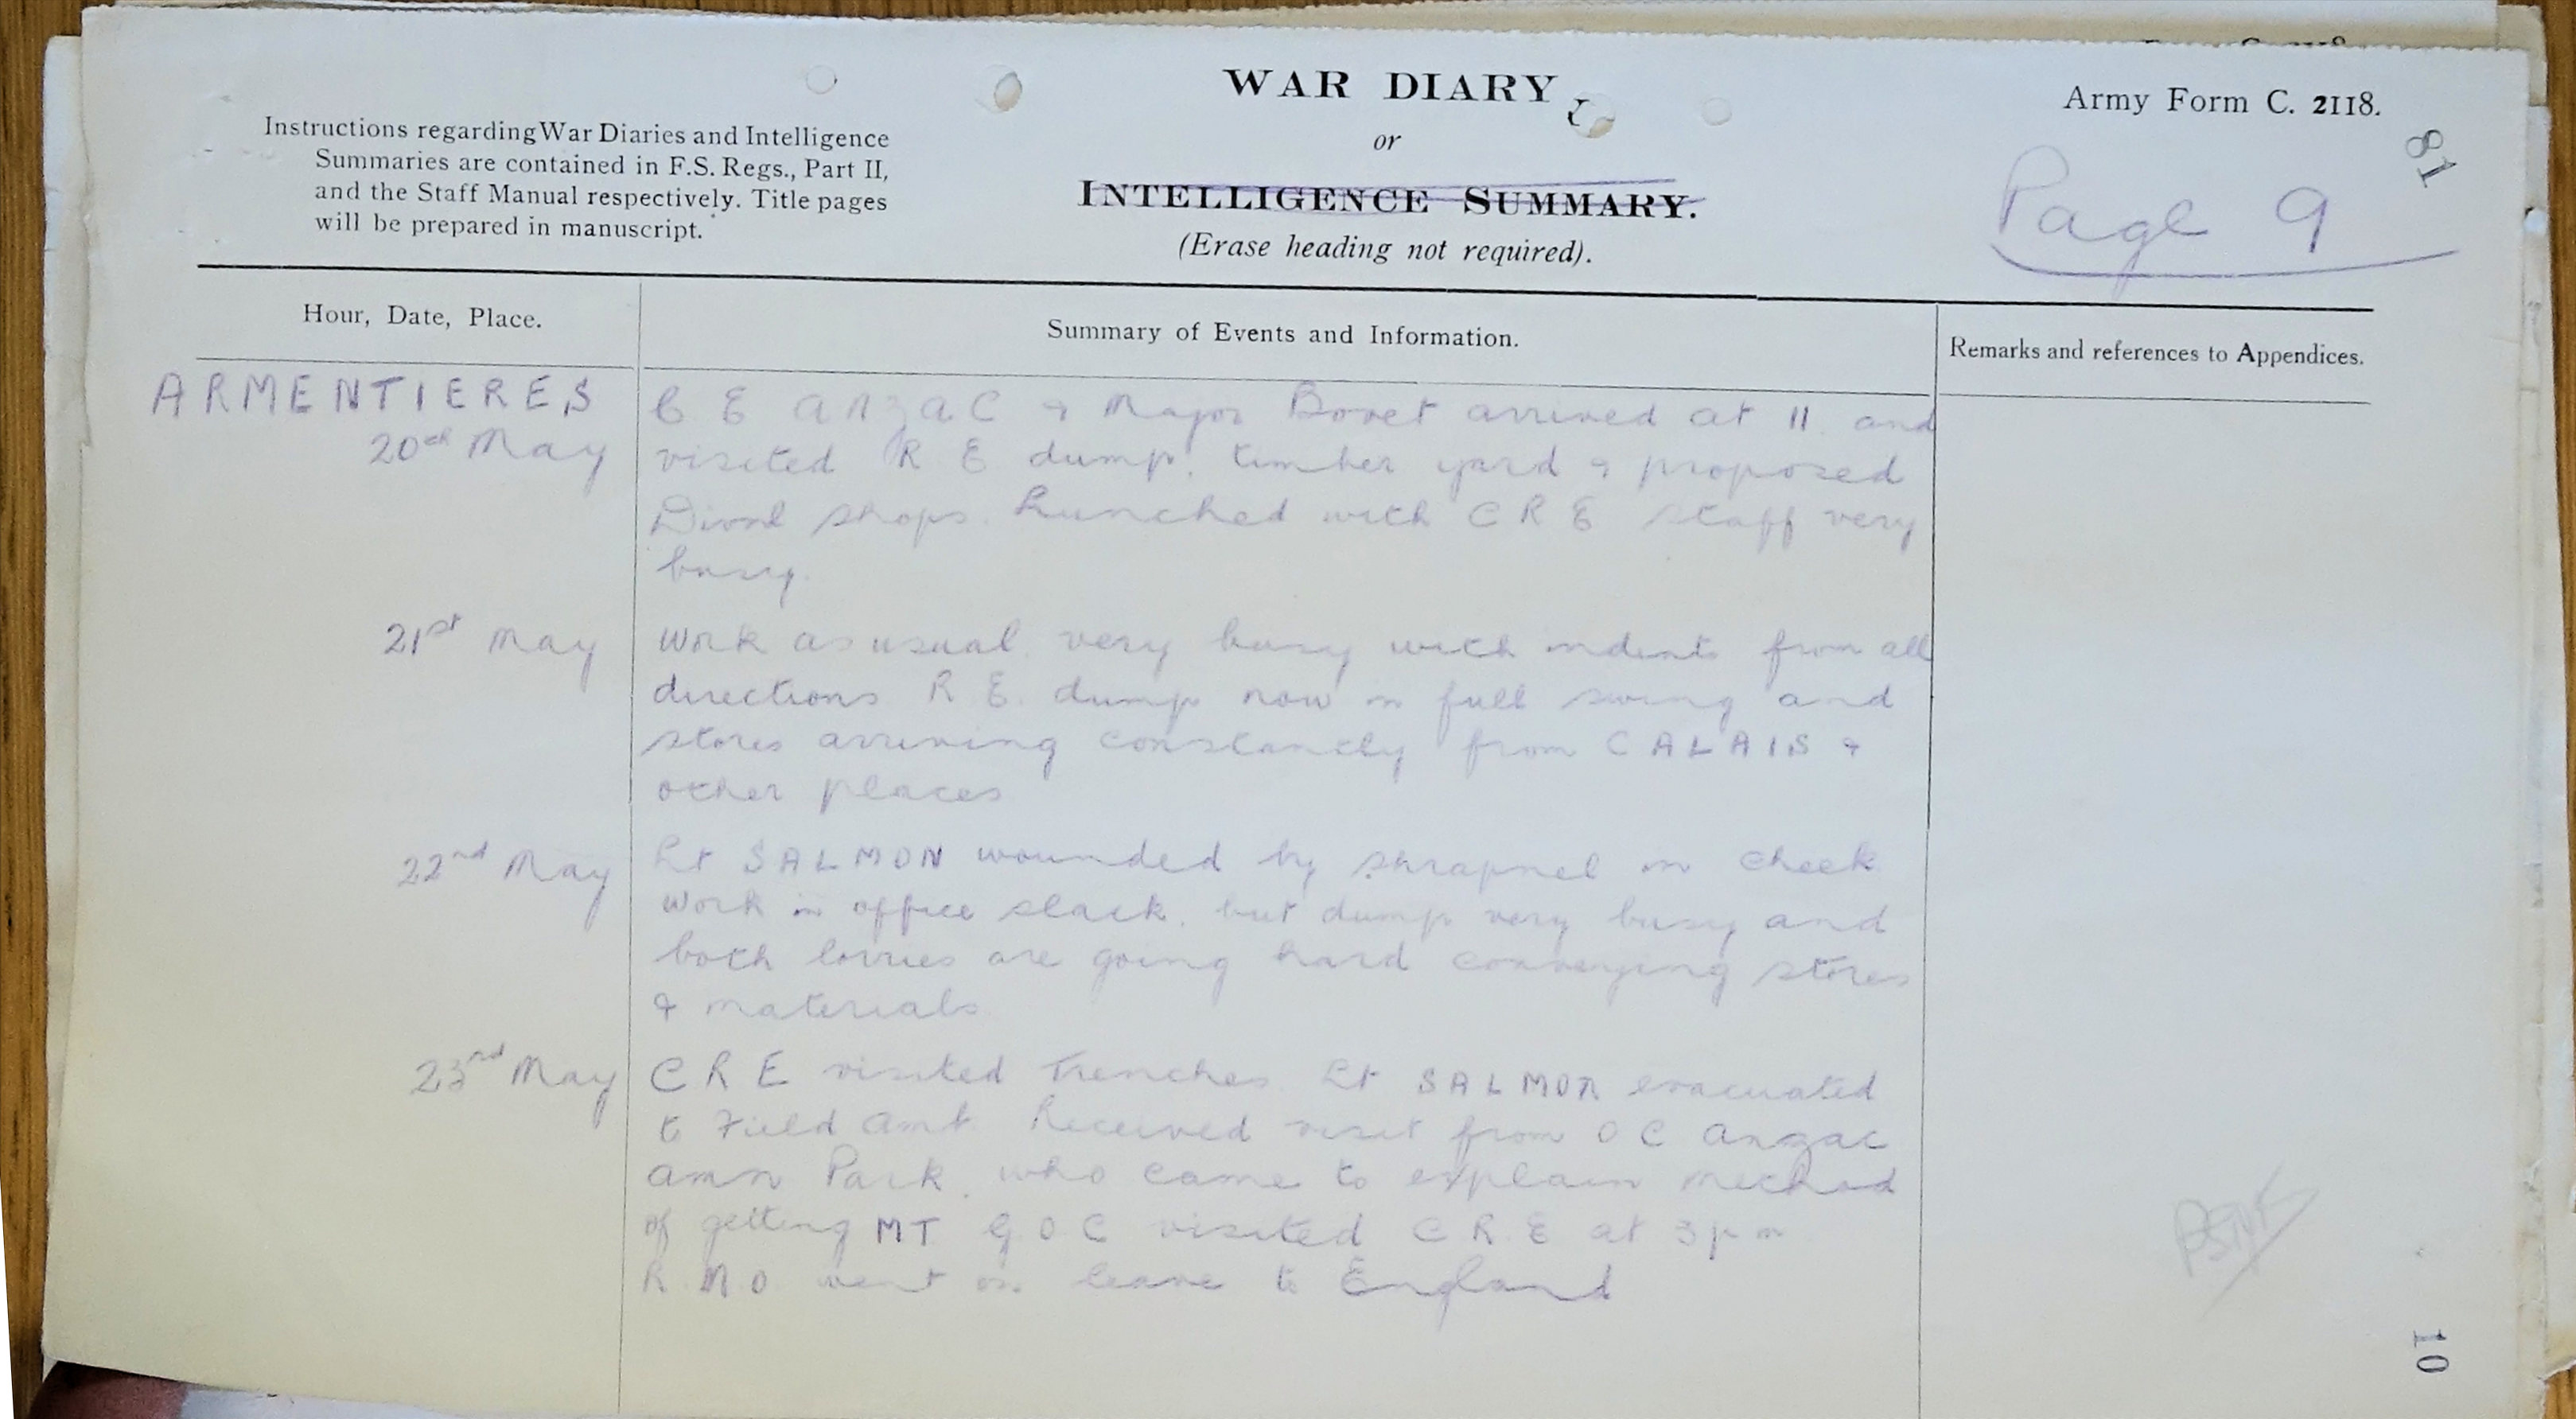 WAR DIARY
or
INTELLIGENCE SUMMARY.
(Erase heading not required).
Instructions regarding War Diaries and Intelligence
Summaries are contained in F.S. Regs., Part II,
and the Staff Manual respectively. Title pages
will be prepared in manuscript.
Army Form C. 2118.
81
Page 9
Hour, Date, Place.
Summary of Events and Information.
Remarks and references to Appendices.
ARMENTIERES
20th May
C E anzac & Major Dovet arrived at 11 and
visited R E dump. timber yard & proposed
Divnl shops. Lunched with C R E staff very
busy.
21st May
Work as usual. very busy with indents from all
directions R E. dump now in full swing and
stores arriving constantly from CALAIS &
other places
22nd May
Lt SALMON wounded by shrapnel in cheek
Work in office slack. but dump very busy and
both lorries are going hard conveying stores
& materials
23rd May
C R E visited Trenches. Lt SALMON evacuated
to Field Amb. Received visit from O C Anzac
Amn Park. who came to explain method
of getting MT G O C visited C R E at 3 pm
R. M O. went on leave to England
10